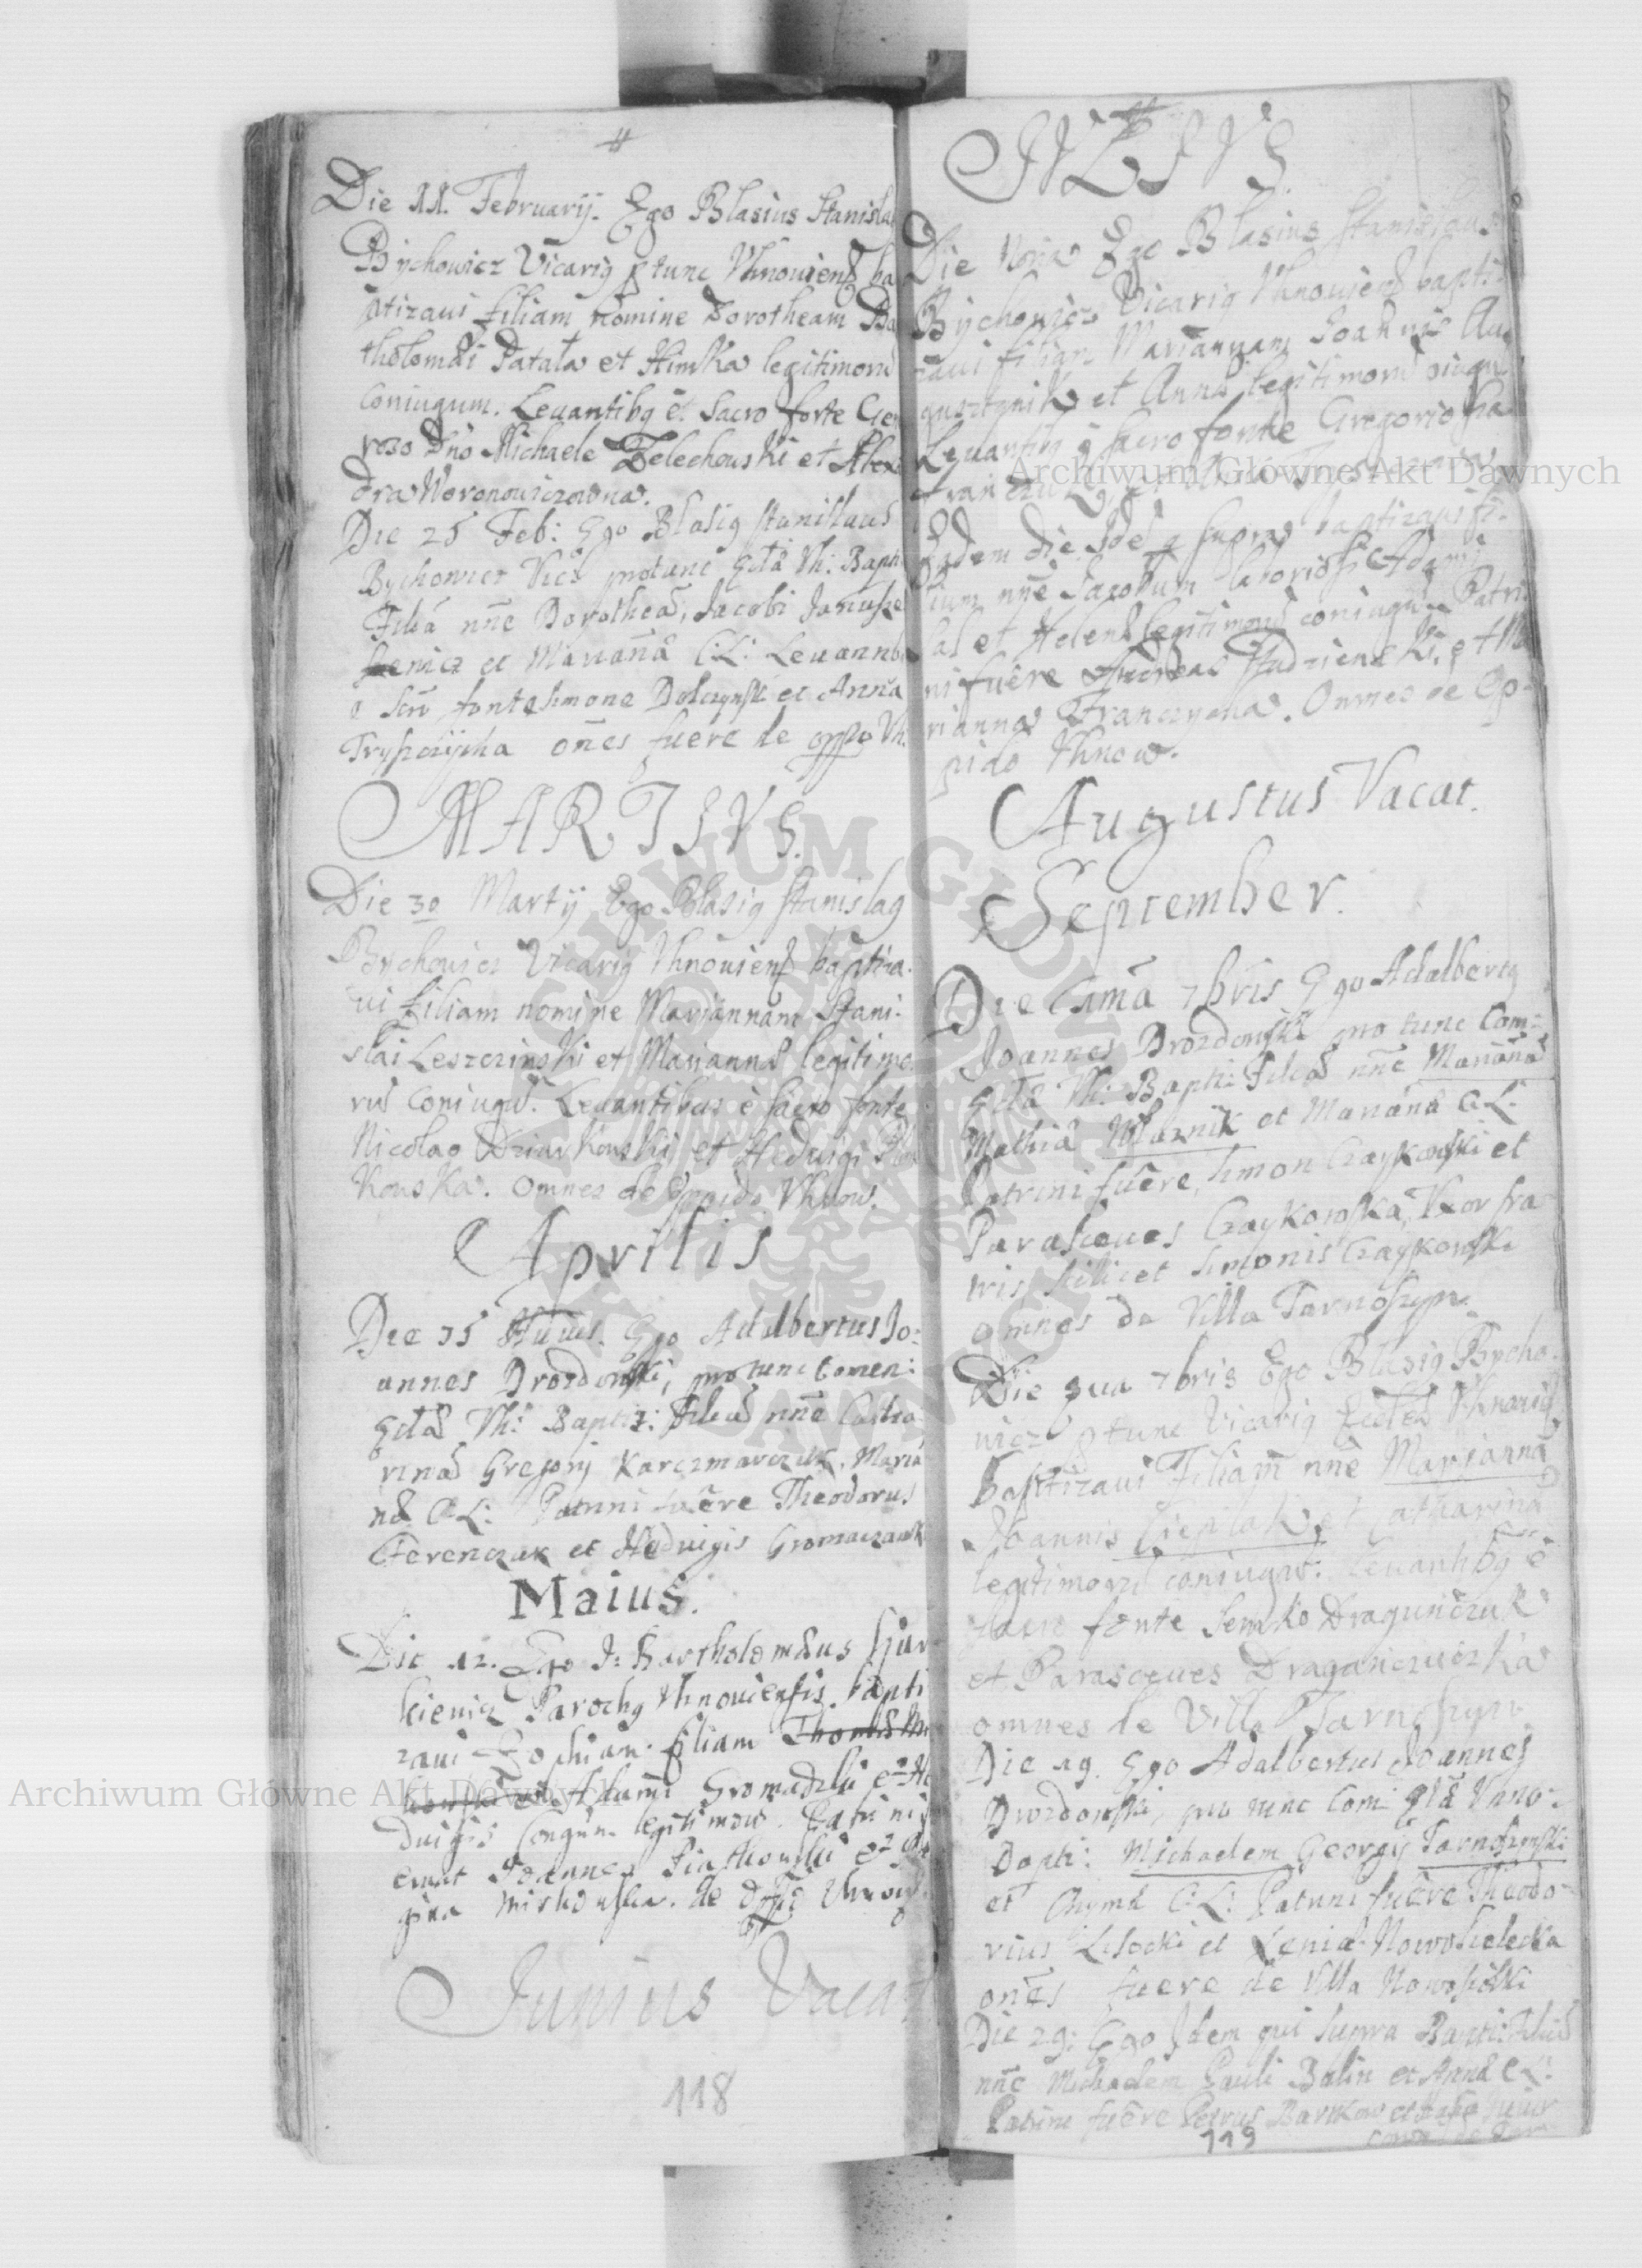 Die 11. Februarij. Ego Blasius Stanisla
Bychowicz Vicarig p tunc Vhnouiens ba
ptizaui filiam nomine Dorotheam Ba
tholomæi Patała et Himka legitimoru
Coniugum. Leuantibg é Sacro fonte Gen
roso Dno Michaele Zelechowski et Alexa
dra Woronowiczowna.
Die 25 Feb: Ego Blasig Stanislaus
Bychowicz Vics protunc Eclæ Vh: Bapti
Filiā nñe Dorotheā, Jacobi Janusze
wicz et Mariānæ C: L: Leuantib
e Scro fonte Simone Dolczynski et Anna
Tryszczycha oñes fuere de oppo Vh.
MARTIVS.
Die 30 Martij Ego Blasig Stanislag
Bychowicz Vicarig Vhnouiens baptiza
ui filiam nomine Mariannam Stani-
slai Leszczinski et Mariannæ legitimo
rū Coniugū. Leuantibus è sacro fonte
Nicolao Dziurkowski et Heduigi
kowska. Omnes de Oppido Vhnow.
Aprilis
Die 15 Huius. Ego Adalbertus Jo-
annes Drozdowski, pro tunc Comen:
Eclæ Vh: Baptiz: Filiā nñe Catha
rinā Gregorij Karczmarczuk, Mariā
næ C L: Patrini fuêre Theodorus
Ferenczak et Heduigis Gromaczank
Maius.
Die 12. Ego J: Bartholomæus
kiewicz Parochg Vhnouiensis bapti
zaui Zophiam filiam Thomæ
Adami Gromadzki et He
duigis Coniugū legitimorū. Patrini
erant Joannes Piastkowski et
gina de Oppid Vhnow
Junius Vacat
118
IVLIVS
Die Nona Ego Blasius Stanislaus
Bychowicz Vicarig Vhnouiens bapti-
zaui filiam Mariannam Joannis Au
gusztynik et Annæ legitimorū Coniugū
Leuantibg è sacro fonte Gregorio
Eadem die Idē q supra baptizaui fi-
lium nñe Jacobum laboriosi Adami
et Helenæ legitimorū coniugū Patri
ni fuêre Andreas Studzienski, et Ma
rianna Franczycha. Omnes de Op-
pido Vhnow.
Augustus Vacat.
September.
Die 7bris Ego Adalbertg
Joannes Drozdowski pro tunc Com-
Eclæ Vh: Bapti: Filiā nñe Mariānā
Mathiæ Woznik et Mariānæ C: L:
Patrini fuêre, Simon Czaykowski et
Parasceues Czaykowska, Vxor fra
tris scilicet Simonis Czaykowski
omnes de Villa Tarnoszyn.
Die 7bris Ego Blasig Bycho
wicz p tunc Vicarig Eccles Vhnouie
baptizaui Filiam nñe Mariannā
Joannis Cieplak et Catharinæ
legitimorū coniugū. Leuantibg è
sacro fonte Semko Draguńczuk
et Parasceues Draganczuczka
omnes de Villa Tarnoszyn
Die 19. Ego Adalbertus Joannes
Drozdowski, pro tunc Com: Eclæ Vhno-
Bapti: Michaelem Georgij Tarnoszynski
et Chymæ C: L: Patrini fuêre Theodo-
rius Lisocki et Xenia Nowosielecka
oñes fuere de Villa Nowosiołki
Die 29: Ego Idem qui Supra Bapti: Filiū
nñe Michaelem Pauli Balin et Annæ C L:
Patrini fuêre Petrus Bartkow et
119
Archiwum Główne Akt Dawnych
Archiwum Główne Akt Dawnych
ARCHIWUM GŁÓWNE AKT DAWNYCH